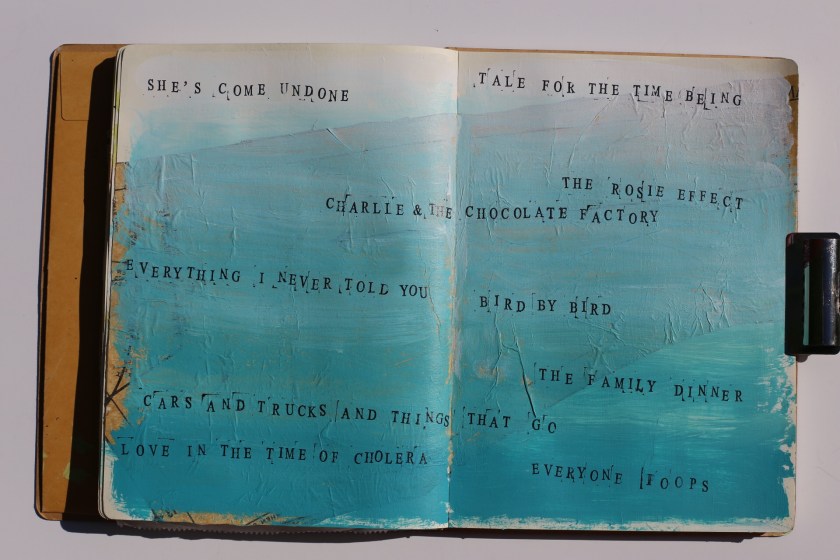 SHE'S COME UNDONE
TALE FOR THE TIME BEING
THE ROSIE EFFECT
CHARLIE & THE CHOCOLATE FACTORY
EVERYTHING I NEVER TOLD YOU
BIRD BY BIRD
THE FAMILY DINNER
CARS AND TRUCKS AND THINGS THAT GO
LOVE IN THE TIME OF CHOLERA
EVERYONE POOPS